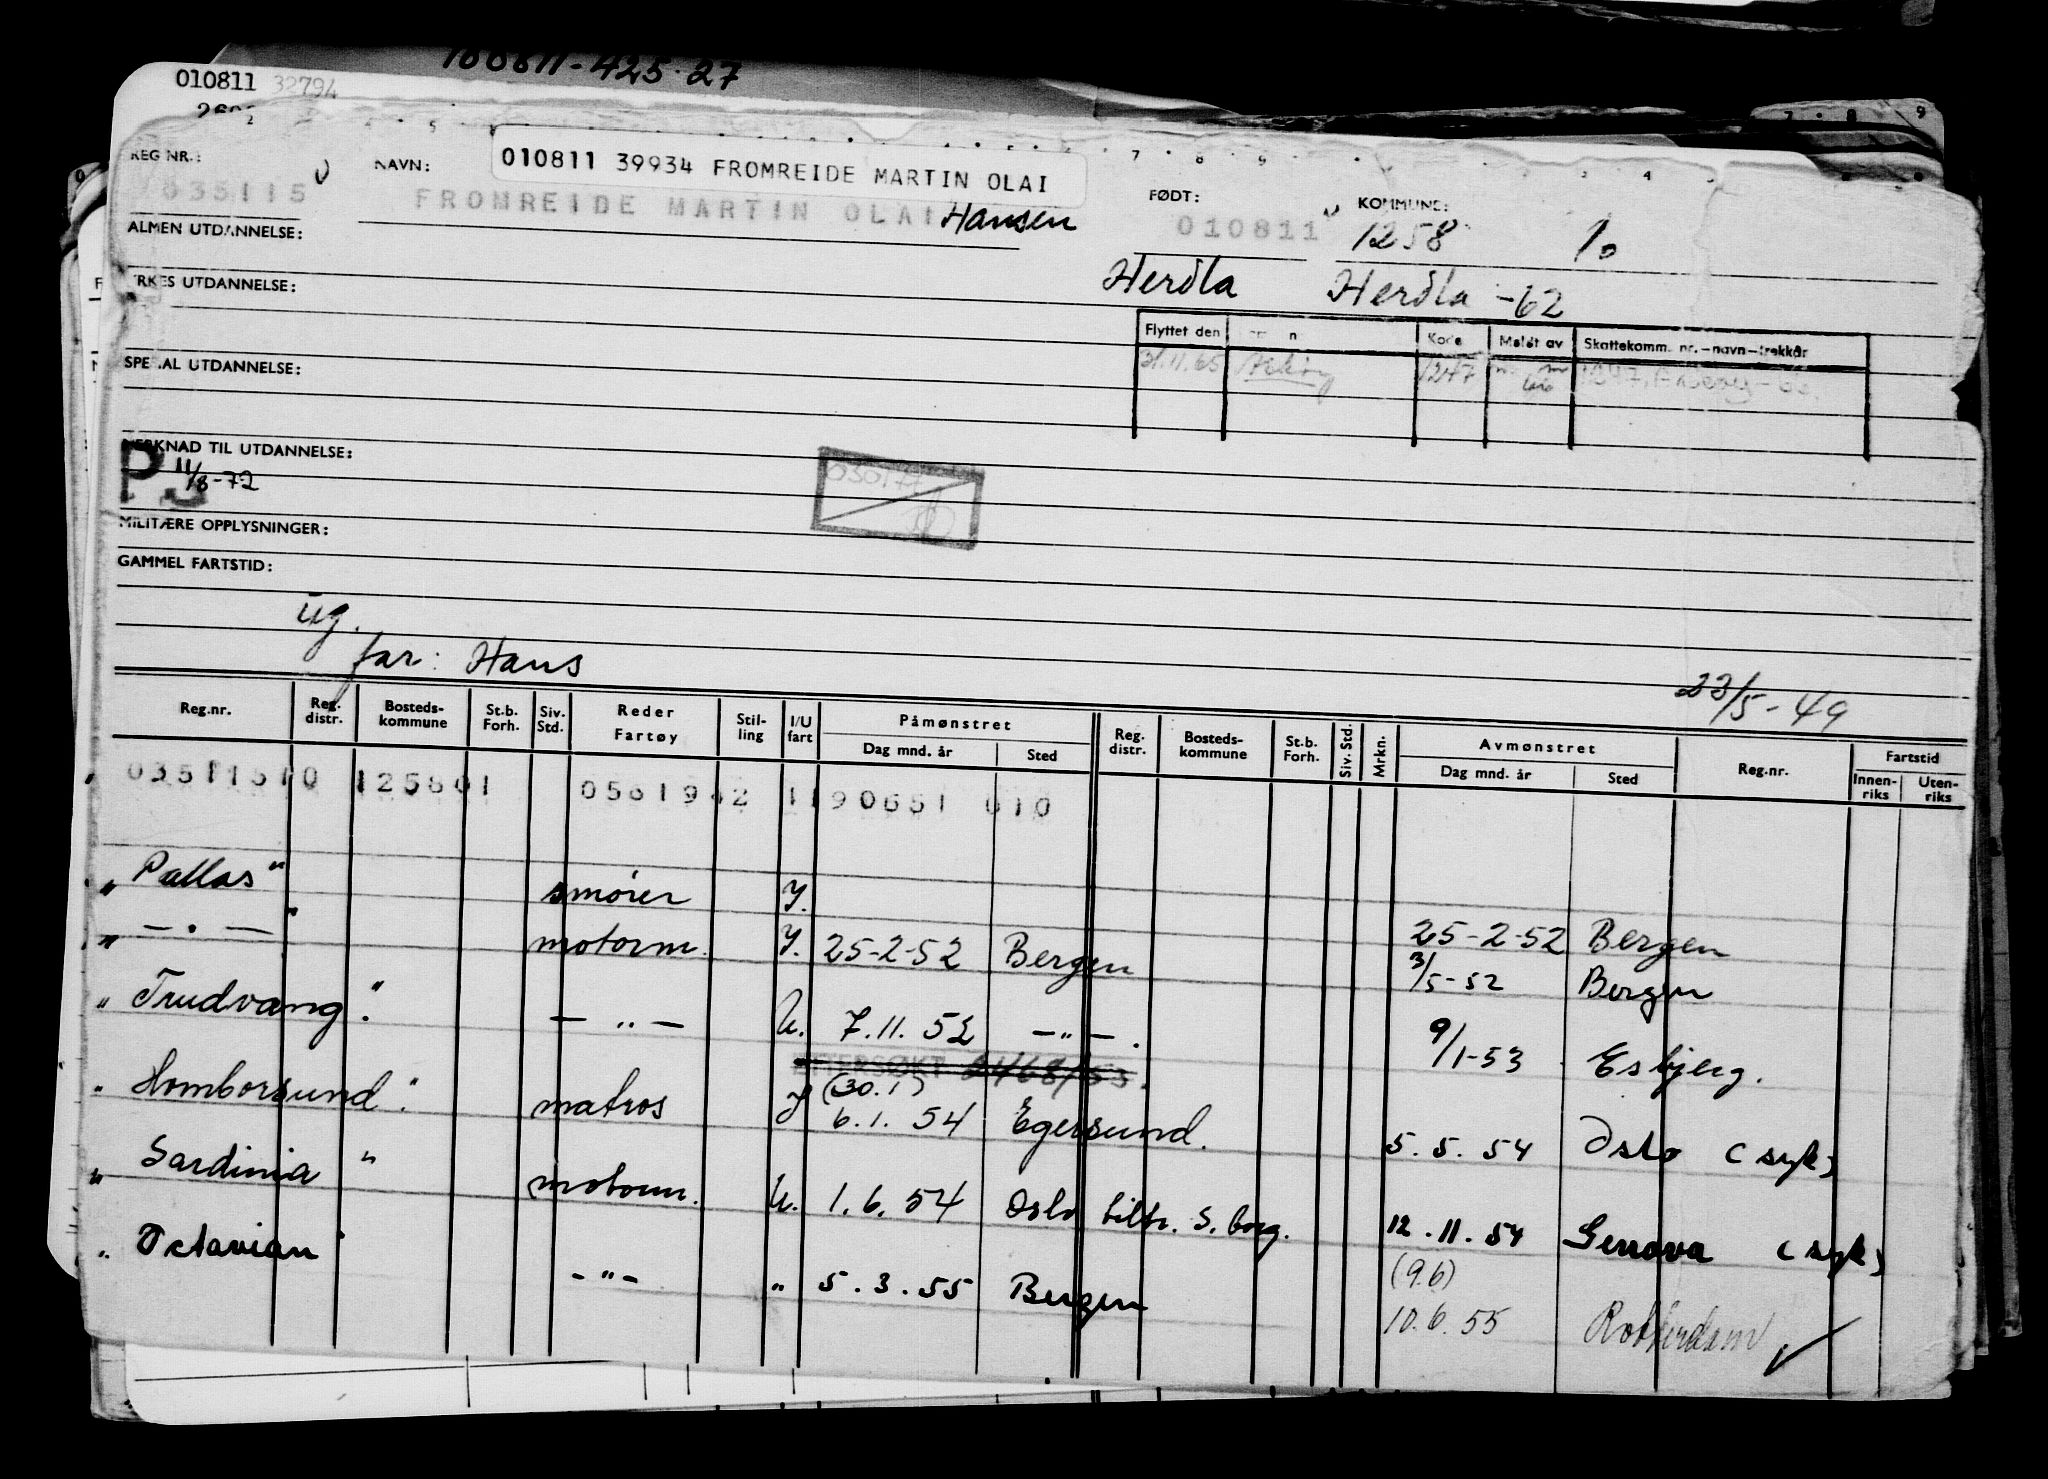 100811-425.27
010811 32794
7 · 8 9
REG NR.:
035115
NAVN:
010811 39934 FROMREIDE MARTIN OLAI
FROMREIDE MARTIN OLAI Hansen
FØDT:
010811
KOMMUNE:
1258 10
ALMEN UTDANNELSE:
Herdla Herdla -62
YRKES UTDANNELSE:
Flyttet den Kode Meldt av Skattekomm. nr.-navn-trekkår
31.11.65 Askøy 1247 1247, Askøy
SPESIAL UTDANNELSE:
MERKNAD TIL UTDANNELSE:
11/8-72
030177
MILITÆRE OPPLYSNINGER:
GAMMEL FARTSTID:
ug.
far: Hans
22/5-49
Reg.nr. Reg. distr. Bosteds-kommune St.b. Forh. Siv. Std. Reder Fartøy Stil-ling I/U fart Påmønstret Dag mnd. år Sted Reg. distr. Bosteds-kommune St.b. Forh. Siv. Std. Mrkn. Avmønstret Dag mnd. år Sted Reg.nr. Fartstid Innen-riks Uten-riks
03511510 125801 0561942 1190651 010
„ Pallas " smører I. 25-2-52 Bergen
„ — . — " motorm. I. 25-2-52 Bergen 3/5-52 Bergen
„ Trudvang". — " — U. 7.11.52 — " — . 9/1-53 Esbjerg.
ETTERSØKT 2468/53.
„ Homborsund". matros I (30.1) 6.1.54 Egersund. 5.5.54 Oslo (syk)
„ Sardinia " motorm. U. 1.6.54 Oslo tiltr. S.borg. 12.11.54 Genova (syk)
„ Octavian" - " - " 5.3.55 Bergen (9.6) 10.6.55 Rotterdam